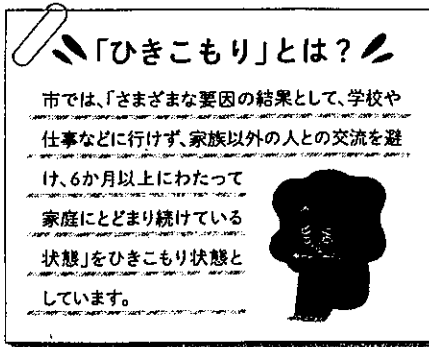 「ひきこもり」とは？
市では、「さまざまな要因の結果として、学校や
仕事などに行けず、家族以外の人との交流を避
け、6か月以上にわたって
家庭にとどまり続けている
状態」をひきこもり状態と
しています。